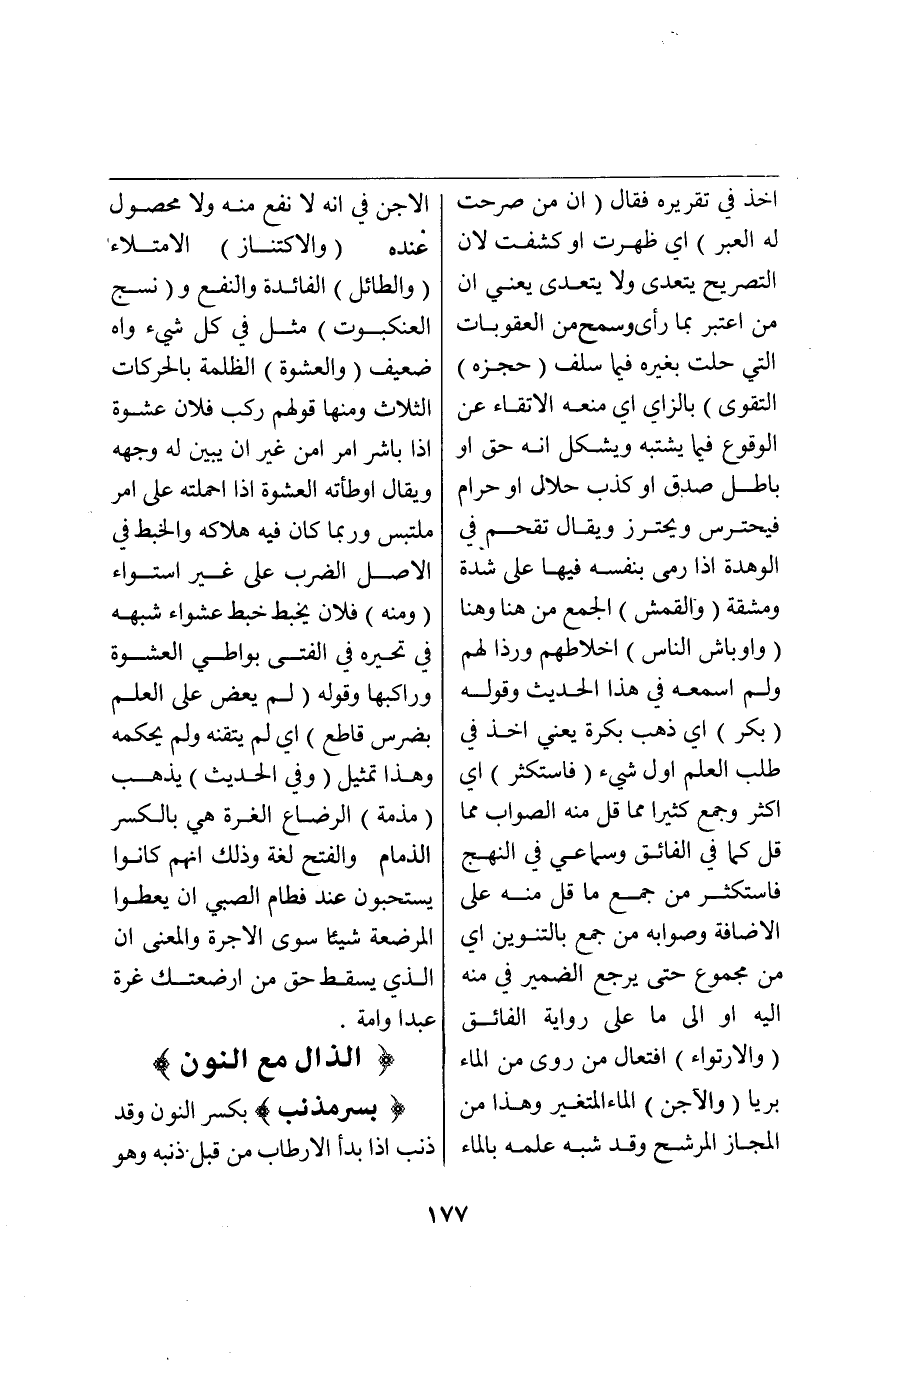 اخذ في تقريره فقال ( ان من صرحت
له العبر ) اي ظهرت او كشفت لان
التصريح يتعدى ولا يتعدى يعني ان
من اعتبر بما رأى وسمع من العقوبات
التي حلت بغيره فيما سلف ( حجزه )
التقوى ) بالزاي اي منعه الاتقاء عن
الوقوع فيما يشتبه ويشكل انه حق او
باطل صدق او كذب حلال او حرام
فيحترس ويحترز ويقال تقحم في
الوهدة اذا رمى بنفسه فيها على شدة
ومشقة ( والقمش ) الجمع من هنا وهنا
( واوباش الناس ) اخلاطهم ورذالهم
ولم اسمعه في هذا الحديث وقوله
( بكر ) اي ذهب بكرة يعني اخذ في
طلب العلم اول شيء ( فاستكثر ) اي
اكثر وجمع كثيرا مما قل منه الصواب مما
قل كما في الفائق وسماعي في النهج
فاستكثر من جمع ما قل منه على
الاضافة وصوابه من جمع بالتنوين اي
من مجموع حتى يرجع الضمير في منه
اليه او الى ما على رواية الفائق
( والارتواء ) افتعال من روى من الماء
بريا ( والآجن ) الماء المتغير وهذا من
المجاز المرشح وقد شبه علمه بالماء
الاجن في انه لا نفع منه ولا محصول
عنده ( والاكتناز ) الامتلاء
( والطائل ) الفائدة والنفع و ( نسج
العنكبوت ) مثل في كل شيء واه
ضعيف ( والعشوة ) الظلمة بالحركات
الثلاث ومنها قولهم ركب فلان عشوة
اذا باشر امر امن غير ان يبين له وجهه
ويقال اوطأته العشوة اذا احملته على امر
ملتبس وربما كان فيه هلاكه والخبط في
الاصل الضرب على غير استواء
( ومنه ) فلان يخبط خبط عشواء شبهه
في تحيره في الفتى بواطي العشوة
وراكبها وقوله ( لم يعض على العلم
بضرس قاطع ) اي لم يتقنه ولم يحكمه
وهذا تمثيل ( وفي الحديث ) يذهب
( مذمة ) الرضاع الغرة هي بالكسر
الذمام والفتح لغة وذلك انهم كانوا
يستحبون عند فطام الصبي ان يعطوا
المرضعة شيئا سوى الاجرة والمعنى ان
الذي يسقط حق من ارضعتك غرة
عبدا وامة .
﴿ الذال مع النون ﴾
﴿ بسر مذنب ﴾ بكسر النون وقد
ذنب اذا بدأ الارطاب من قبل ذنبه وهو
١٧٧